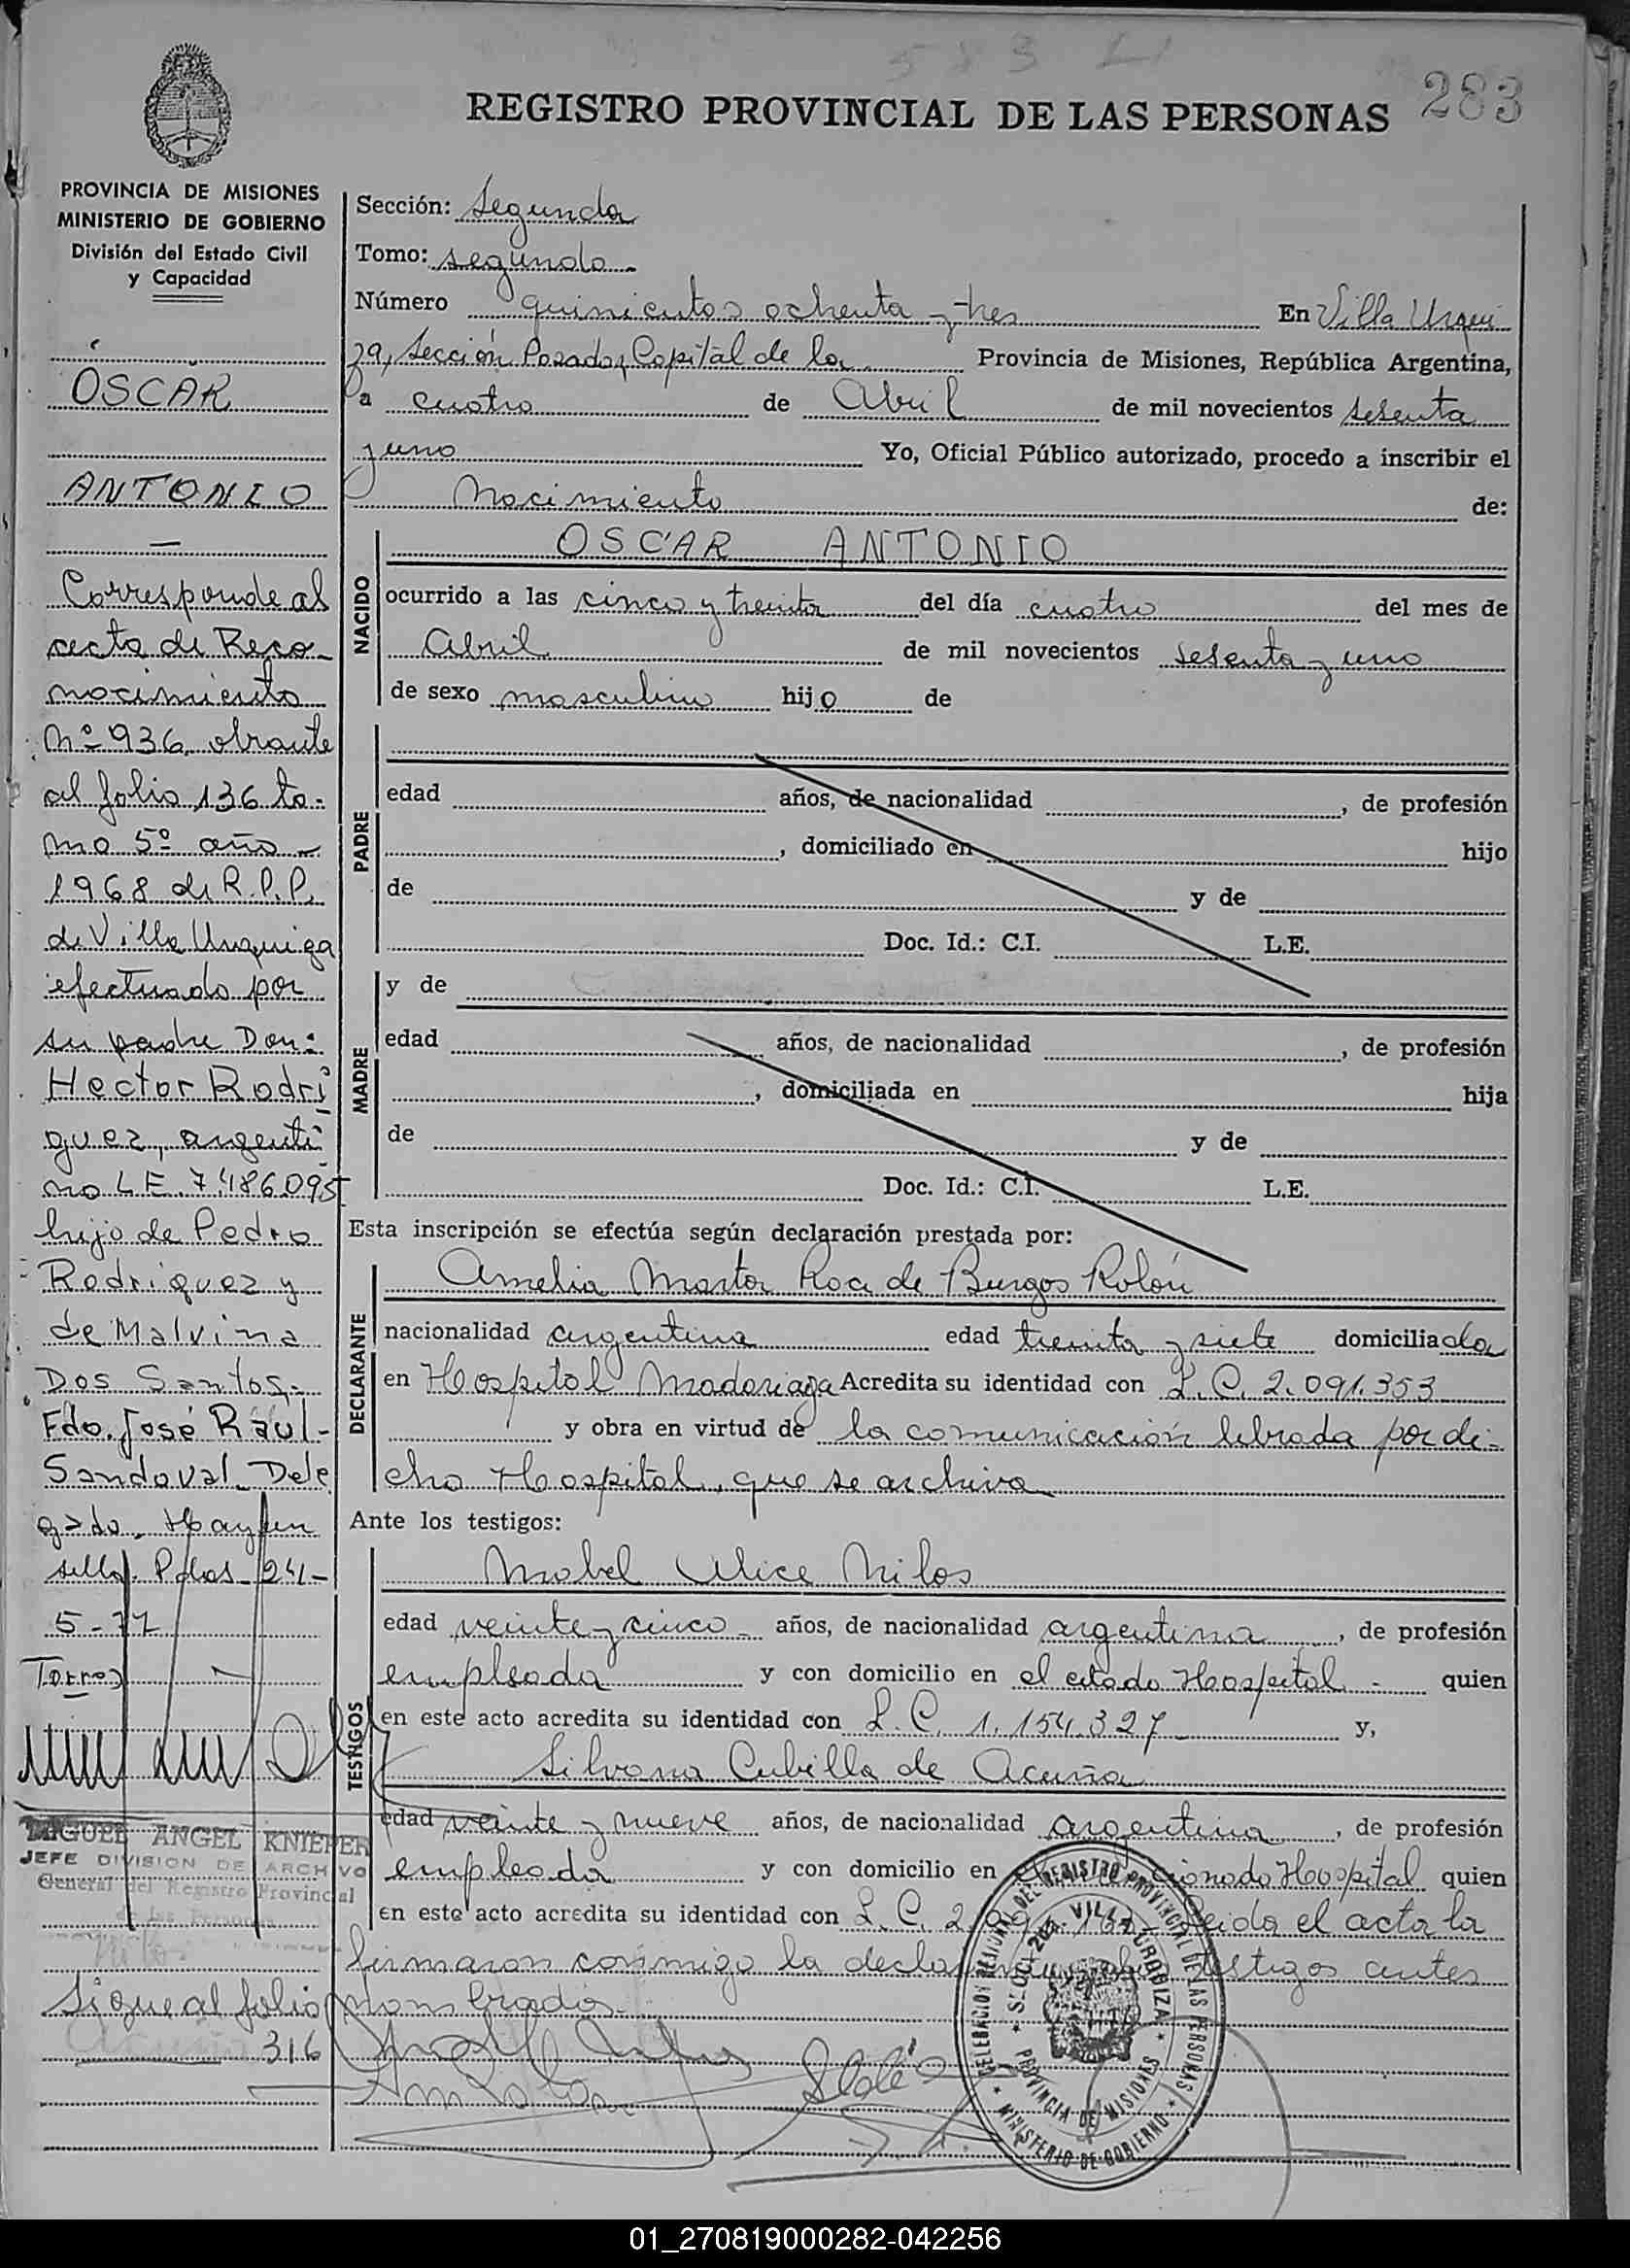 283
REGISTRO PROVINCIAL DE LAS PERSONAS
PROVINCIA DE MISIONES
MINISTERIO DE GOBIERNO
División del Estado Civil
y Capacidad
OSCAR
ANTONIO
Corresponde al
acta de Reco-
nocimiento
Nº 936, obrante
al folio 136 to-
mo 5º año
1968 de R.P.P.
de Villa Urquiza
efectuado por
su padre Don:
Hector Rodri
guez, argenti
no L.E. 7.486.095
hijo de Pedro
Rodriguez y
de Malvina
Dos Santos.-
Fdo. José Raul-
Sandoval Dele
gado. Hay un
sello. Pdas. 24-
5-77
Torres
MIGUEL ANGEL KNIEPER
JEFE DIVISION DE ARCHIVO
General del Registro Provincial
de las Personas
Sigue al folio
316
Sección: Segunda
Tomo: segundo
Número quinientos ochenta y tres En Villa Urqui
za, Sección Posadas, Capital de la Provincia de Misiones, República Argentina,
a cuatro de Abril de mil novecientos sesenta
y uno Yo, Oficial Público autorizado, procedo a inscribir el
Nacimiento de:
NACIDO
OSCAR ANTONIO
ocurrido a las cinco y treinta del día cuatro del mes de
Abril de mil novecientos sesenta y uno
de sexo masculino hijo de
PADRE
edad años, de nacionalidad , de profesión
, domiciliado en hijo
de y de
Doc. Id.: C.I. L.E.
y de
MADRE
edad años, de nacionalidad , de profesión
, domiciliada en hija
de y de
Doc. Id.: C.I. L.E.
Esta inscripción se efectúa según declaración prestada por:
DECLARANTE
Amelia Marta Roa de Burgos Rolón
nacionalidad argentina edad treinta y siete domiciliada
en Hospital Madariaga Acredita su identidad con L.C. 2.091.353
y obra en virtud de la comunicación librada por di-
cho Hospital, que se archiva
Ante los testigos:
TESTIGOS
Mabel Alice Milos
edad veinte y cinco años, de nacionalidad argentina, de profesión
empleada y con domicilio en el citado Hospital - quien
en este acto acredita su identidad con L.C. 1.154.327 y,
Silvana Cubilla de Acuña
edad veinte y nueve años, de nacionalidad argentina, de profesión
empleada y con domicilio en Hospital quien
en este acto acredita su identidad con L.C. 2. Leida el acta la
firmaron conmigo la testigos antes
nombrados.-
DELEGACION REGIONAL DEL REGISTRO PROVINCIAL DE LAS PERSONAS
MINISTERIO DE GOBIERNO
VILLA URQUIZA
PROVINCIA DE MISIONES
01_270819000282-042256